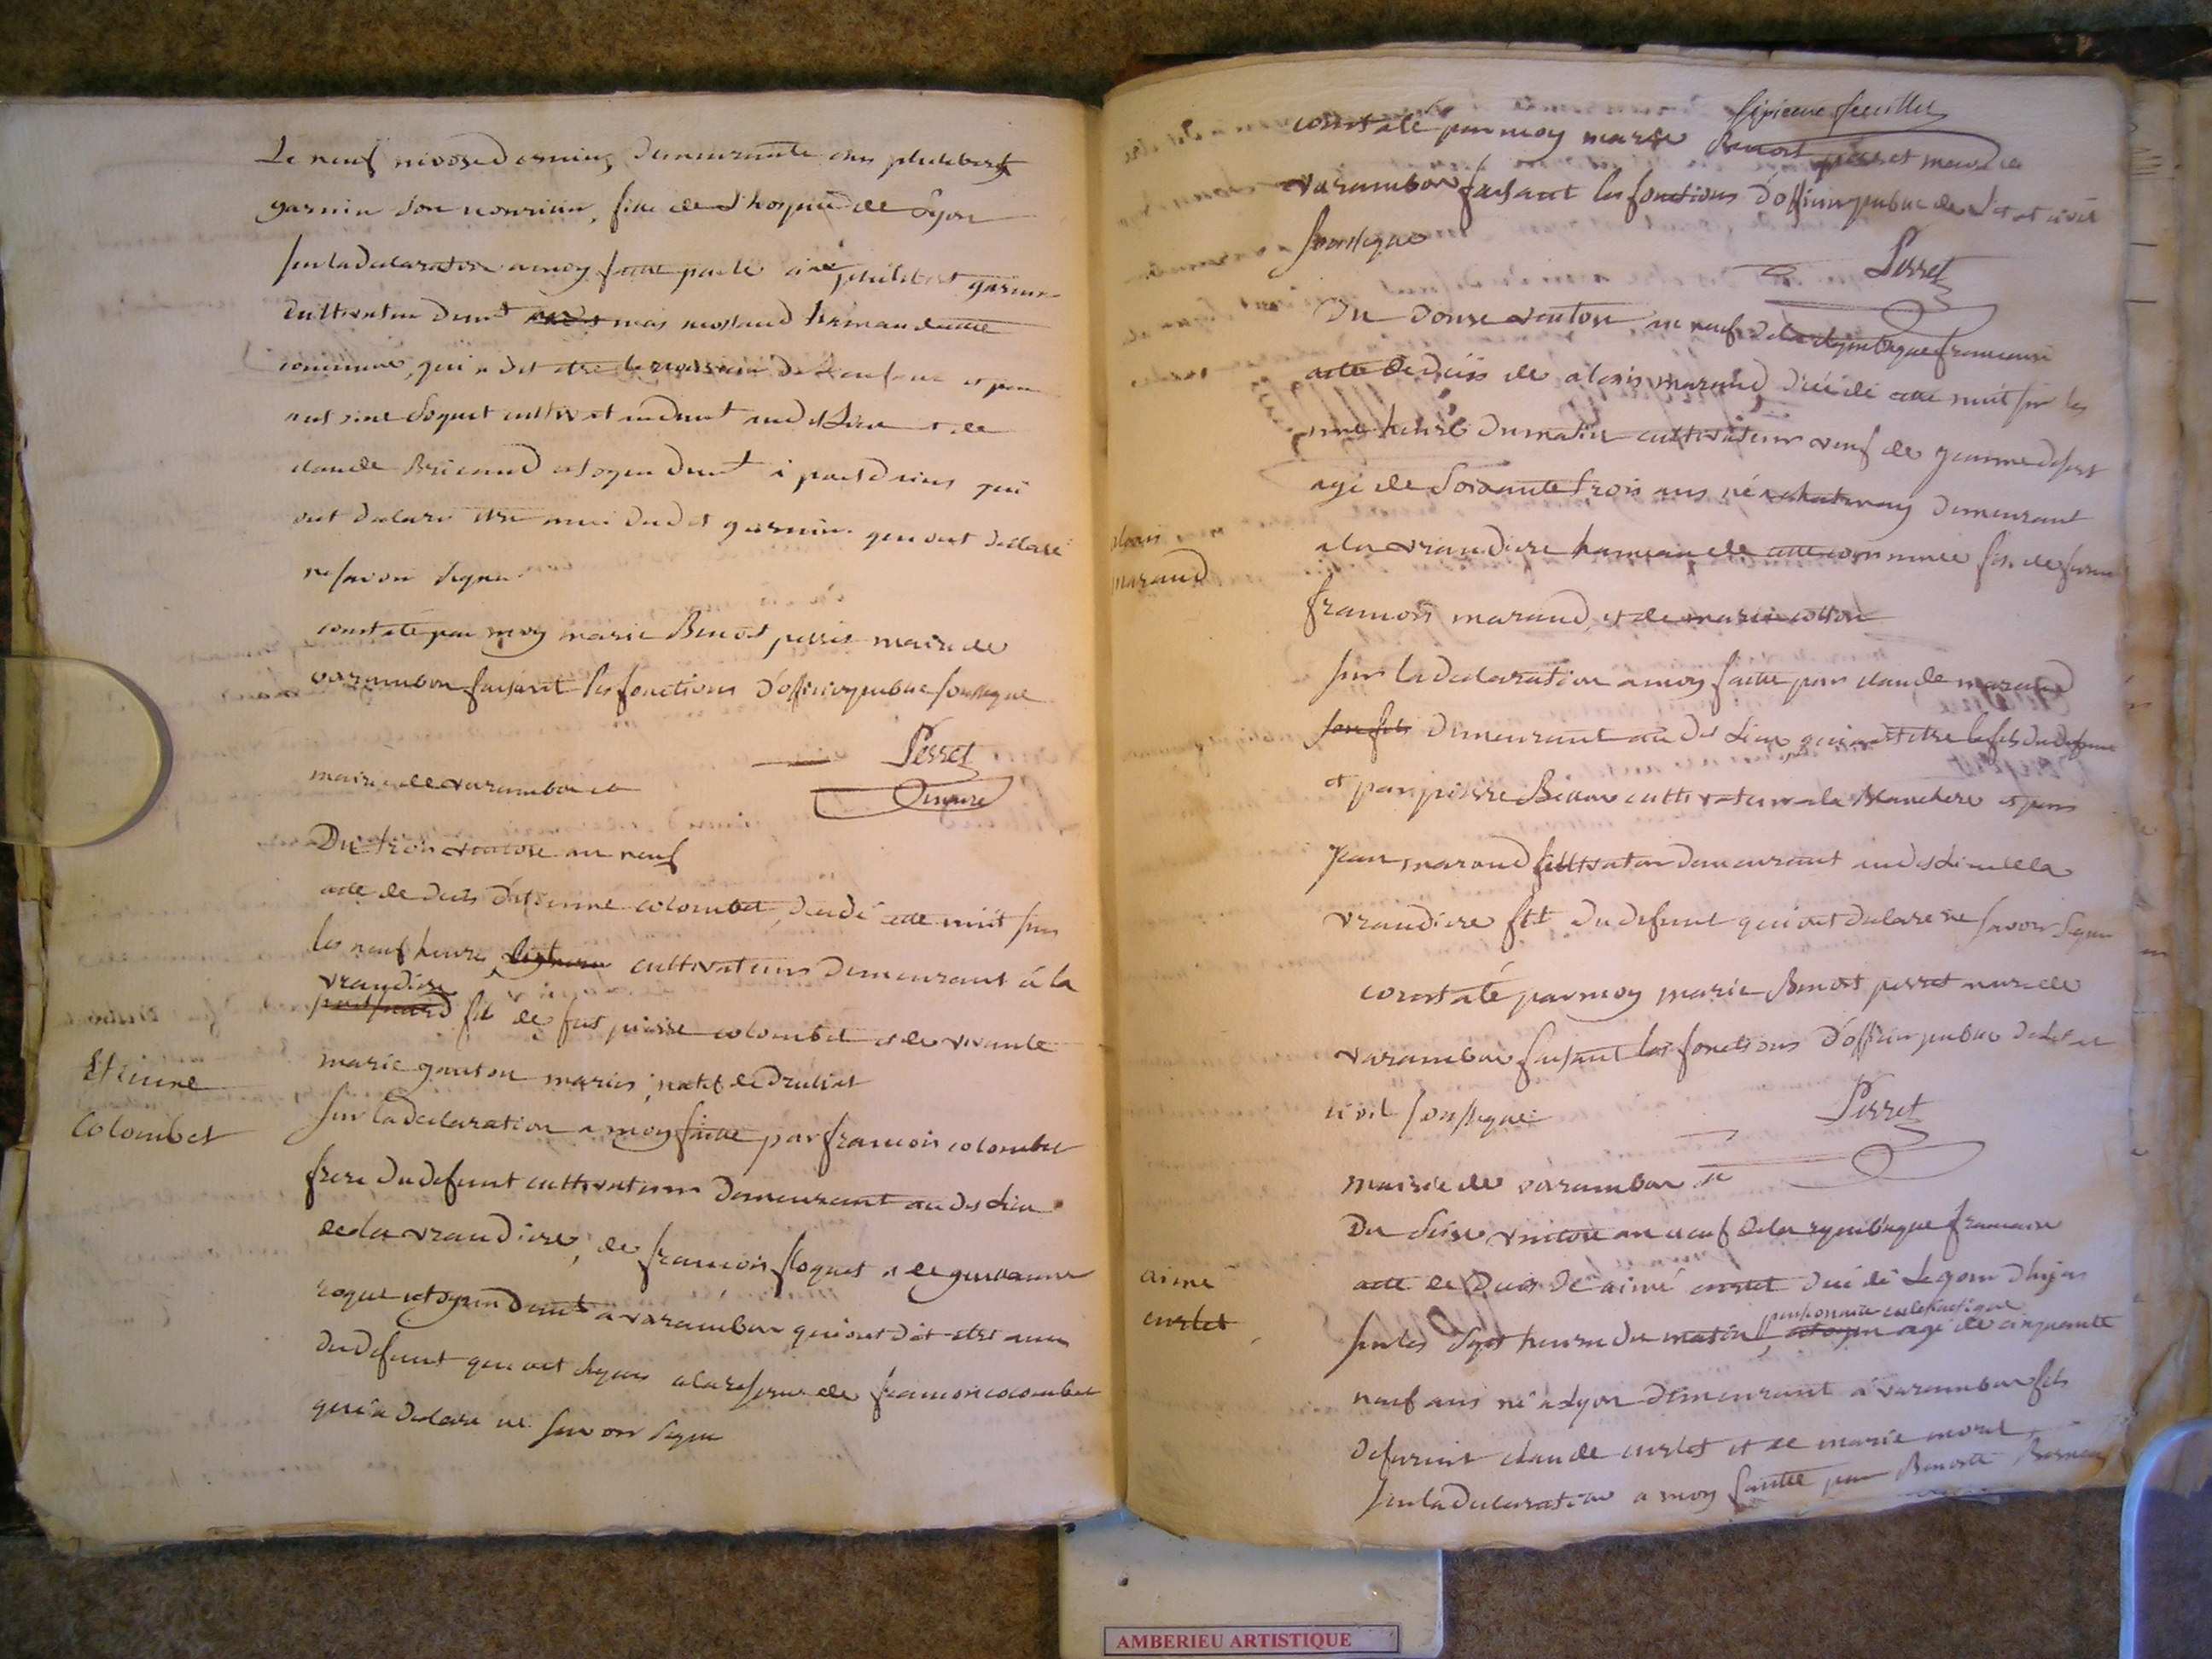 Le neuf nivose dernier, demeurante chez philebert
garnin son nourricier, fille de L'hospice de Lyon
sur la declaration a moy faitte par le philibert garnin
cultivateur demt mas hameau de cette
commune, qui a dit etre le nourricier de L'enfant et par
soquet cultivat audit Lieu et de
claude citoyen demt a qui
ont declare etre amis dudit garnin qui ont declaré
ne savoir signer
constaté par moy marie Benoit perret maire de
varambon faisant les fonctions d'officier public soussigné
Perret
maire
mairie de varambon
Du trois ventose an neuf
acte de deces d'etienne colombet, decedé cette nuit sur
les neuf heures, cultivateur demeurant á la
vraudiere
fils de fut pierre colombet et de vivante
marie maries, natif de druliat
Sur la declaration a moy faitte par francois colombet
frere du defunt cultivateur demeurant au dit Lieu
de la vraudiere, de francois soquet et de
roque citoyen demt a varambon qui ont dit etre amis
du defunt qui ont signé a la reserve de francois colombet
qui a declaré ne savoir signer
Etienne
Colombet
constaté par moy marie Benoit perret maire de
varambon faisant les fonctions d'officier public de l'etat civil
soussigné
Perret
Du douze ventose an neuf de la republique francaise
acte de deces de alexis maraud decedé cette nuit sur les
heures du matin cultivateur veuf de jeanne
agé de soixante trois ans né a chatenay demeurant
a la vraudiere hameau de cette commune fils de
francois maraud, et de marie
alexis
maraud
Sur la declaration a moy faitte par claude maraud
son fils demeurant au dit Lieu qui a dit etre le fils du defunt
et par pierre cultivateur a la Blanchere et par
jean maraud cultivateur demeurant au dit Lieu de la
vraudiere du defunt qui ont declaré ne savoir signer
constaté par moy marie Benoit perret maire de
varambon faisant les fonctions d'officier public de l'etat
civil soussigné
Perret
mairie de varambon
Du seize ventose an neuf de la republique francaise
acte de deces de aimé curlet decedé Le jour d'hyer
pensionnaire eclesiastique
sur les sept heures du matin, agé de cinquante
neuf ans né a Lyon demeurant a varambon fils
de furent claude curlet et de marie morel
aimé
curlet
sur la declaration a moy faitte par Benoitte
AMBERIEU ARTISTIQUE